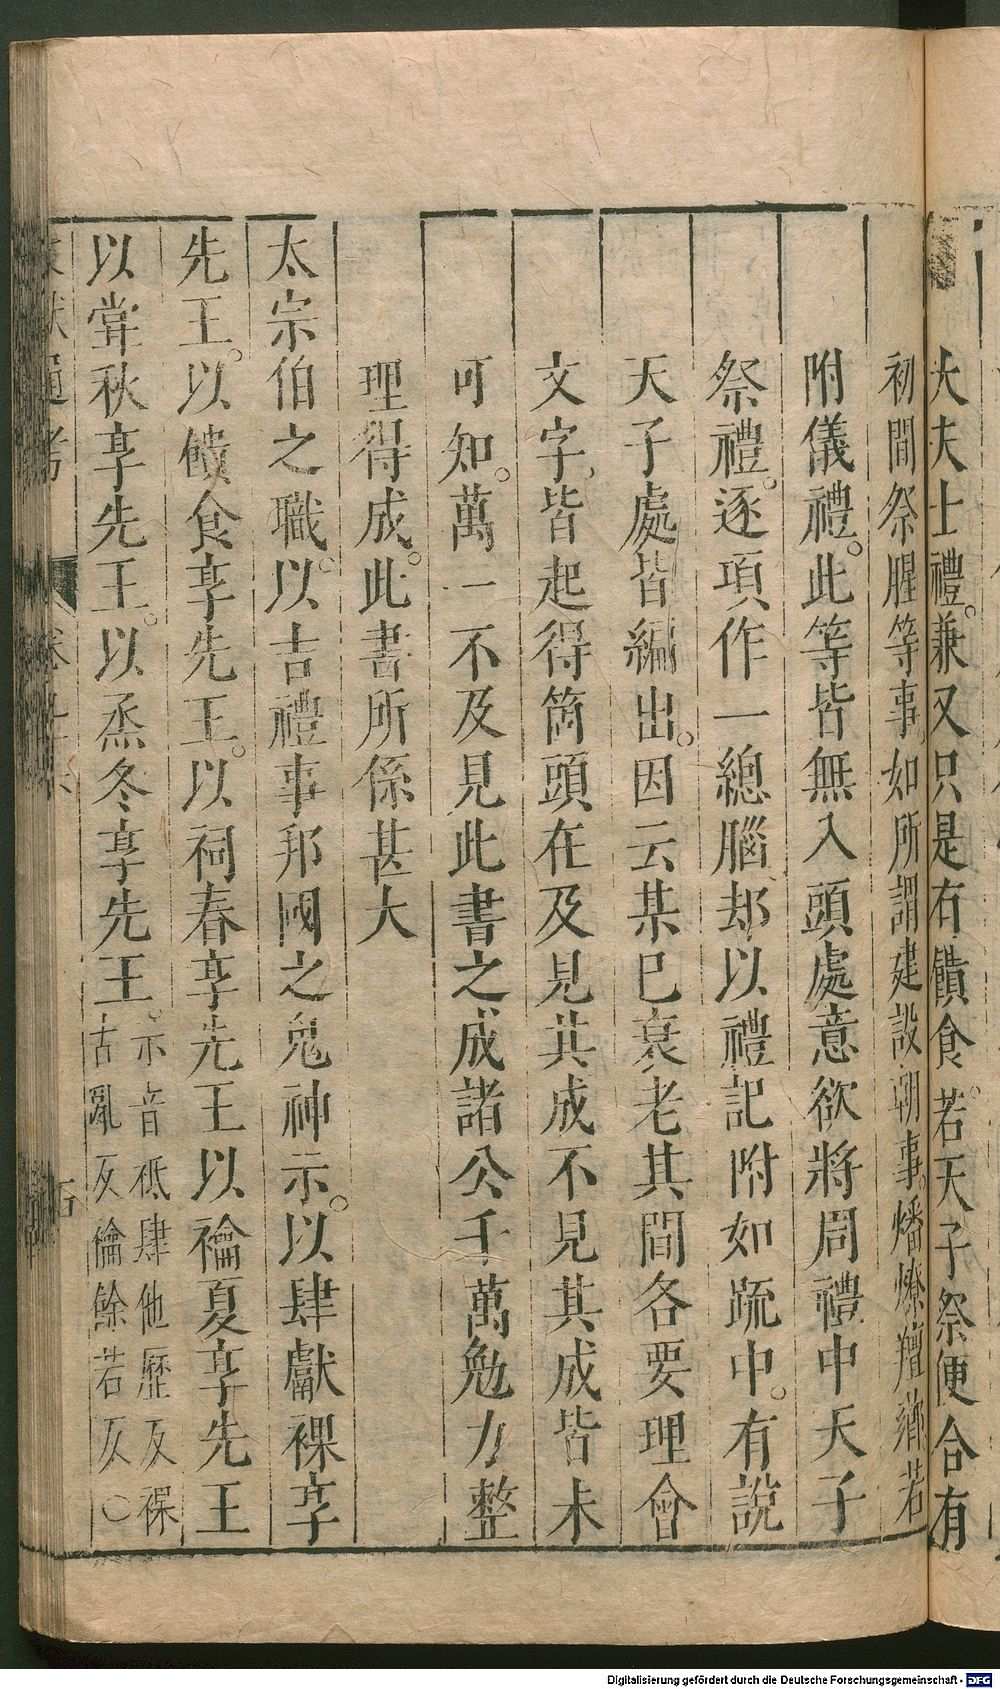 大夫士禮。兼又只是有饋食。若天子祭便合有
初間祭腥等事如所謂建設朝事。燔燎羶薌若
附儀禮。此等皆無入頭處意欲將周禮中天子
祭禮。逐項作一總腦却以禮記附如疏中。有說
天子處皆編出。因云某已衰老其間各要理會
文字皆起得箇頭在及見其成不見其成皆未
可知。萬一不及見此書之成諸公千萬勉力整
理得成。此書所係甚大
太宗伯之職。以吉禮事邦國之鬼神示。以肆獻祼享
先王。以饋食享先王。以祠春享先王以禴夏享先王
以嘗秋享先王。以烝冬享先王。示音祗肆他歷反祼
古亂反禴餘若反〇
Digitalisierung gefördert durch die Deutsche Forschungsgemeinschaft - DFG